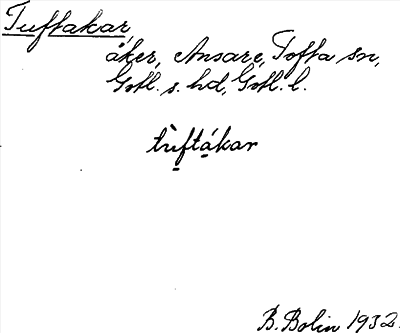 Tuftakar,
åker, Ansare, Tofta sn,
Gotl. s. hd, Gotl. l.
tùftákar
B. Bolin 1932.